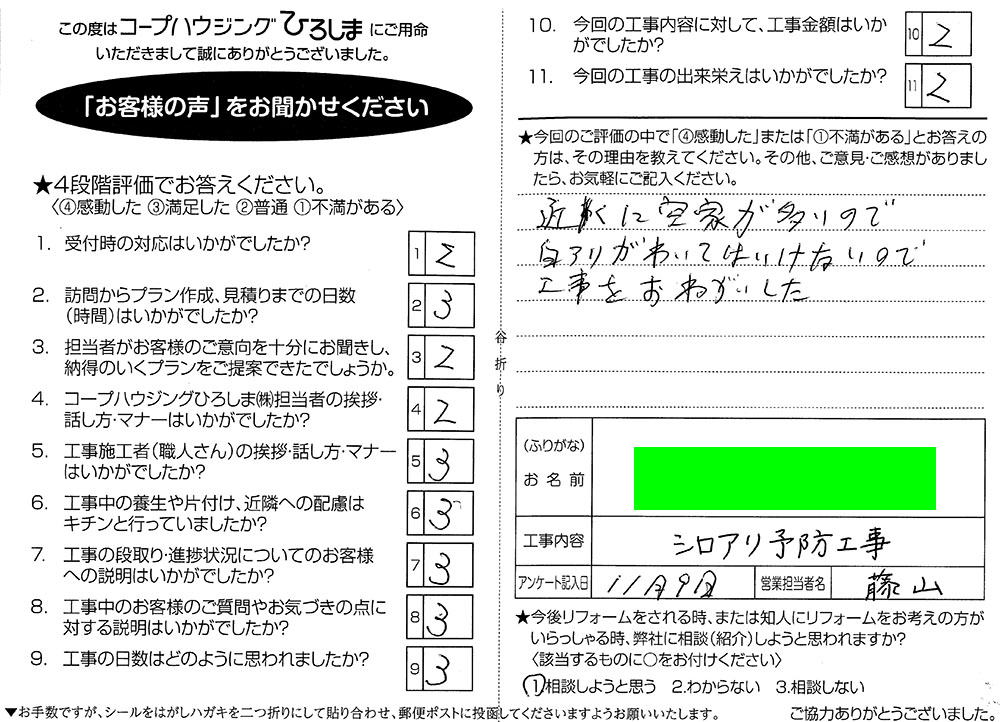 この度はコープハウジングひろしまにご用命
いただきまして誠にありがとうございました。
「お客様の声」をお聞かせください
★4段階評価でお答えください。
〈④感動した ③満足した ②普通 ①不満がある〉
1. 受付時の対応はいかがでしたか?
1 2
2. 訪問からプラン作成、見積りまでの日数
(時間)はいかがでしたか?
2 3
3. 担当者がお客様のご意向を十分にお聞きし、
納得のいくプランをご提案できたでしょうか。
3 2
4. コープハウジングひろしま㈱担当者の挨拶・
話し方・マナーはいかがでしたか?
4 2
5. 工事施工者(職人さん)の挨拶・話し方・マナー
はいかがでしたか?
5 3
6. 工事中の養生や片付け、近隣への配慮は
キチンと行っていましたか?
6 3
7. 工事の段取り・進捗状況についてのお客様
への説明はいかがでしたか?
7 3
8. 工事中のお客様のご質問やお気づきの点に
対する説明はいかがでしたか?
8 3
9. 工事の日数はどのように思われましたか?
9 3
▼お手数ですが、シールをはがしハガキを二つ折りにして貼り合わせ、郵便ポストに投函してくださいますようお願いいたします。
谷折り
10. 今回の工事内容に対して、工事金額はいか
がでしたか?
10 2
11. 今回の工事の出来栄えはいかがでしたか?
11 2
★今回のご評価の中で「④感動した」または「①不満がある」とお答えの
方は、その理由を教えてください。その他、ご意見・ご感想がありまし
たら、お気軽にご記入ください。
近くに空家が多いので
白アリがわいてはいけないので
工事をおねがいした
(ふりがな)
お名前
工事内容 シロアリ予防工事
アンケート記入日 11月9日 営業担当者名 藤山
★今後リフォームをされる時、または知人にリフォームをお考えの方が
いらっしゃる時、弊社に相談(紹介)しようと思われますか?
〈該当するものに○をお付けください〉
1.相談しようと思う 2.わからない 3.相談しない
ご協力ありがとうございました。